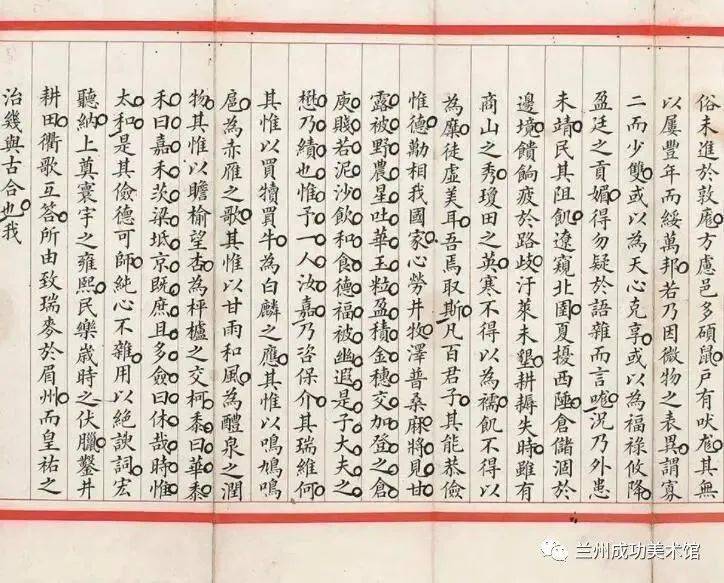 俗未進於敦龎方慮邑多碩鼠戶有吠尨其無
以屢豐年而綏萬邦若乃因微物之表異謂寡
二而少雙或以為天心克享或以為福祿攸降
盈廷之貢媚得勿疑於語雜而言哤況乃外患
未靖民其阻飢遼窺北圉夏擾西陲倉儲涸於
邊境饋餉疲於路歧汙萊未墾耕耨失時雖有
商山之秀瓊田之英寒不得以為襦飢不得以
為糜徒虛美耳吾焉取斯凡百君子其能恭儉
惟德勤相我國家心勞井牧澤普桑麻將見甘
露被野農星吐華玉粒盈積金穗交加登之倉
庾賤若泥沙飲和食德福被幽遐是子大夫之
懋乃績也惟予一人汝嘉乃咨保介其瑞維何
其惟以買犢買牛為白麟之應其惟以鳴鳩鳴
扈為赤雁之歌其惟以甘雨和風為醴泉之潤
物其惟以瞻榆望杏為枰櫨之交柯黍曰華黍
禾曰嘉禾茨梁坻京既庶且多僉曰休哉時惟
太和是其儉德可師純心不雜用以絕諛詞宏
聽納上奠寰宇之雍熙民樂歲時之伏臘鑿井
耕田衢歌互答所由致瑞麥於眉州而皇祐之
治幾與古合也我
兰州成功美术馆